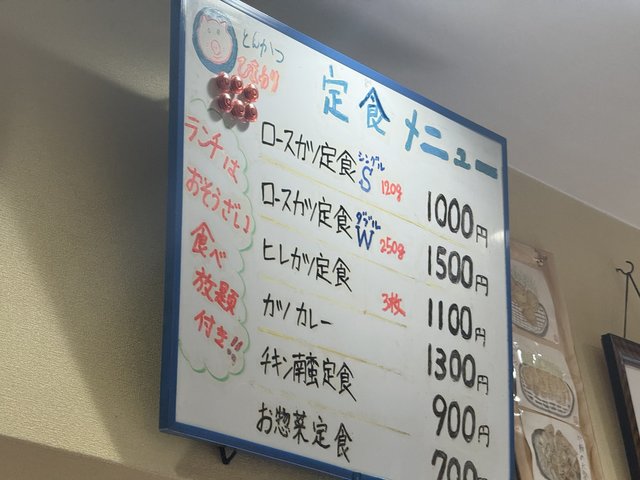 とんかつ
ひまわり
定食 メニュー
ランチは
おそうざい
食べ
放題
付き!!
ロースカツ定食 シングル S 120g 1000円
ロースカツ定食 ダブル W 250g 1500円
ヒレカツ定食 3枚 1100円
カツカレー 1300円
チキン南蛮定食 900円
お惣菜定食 700円